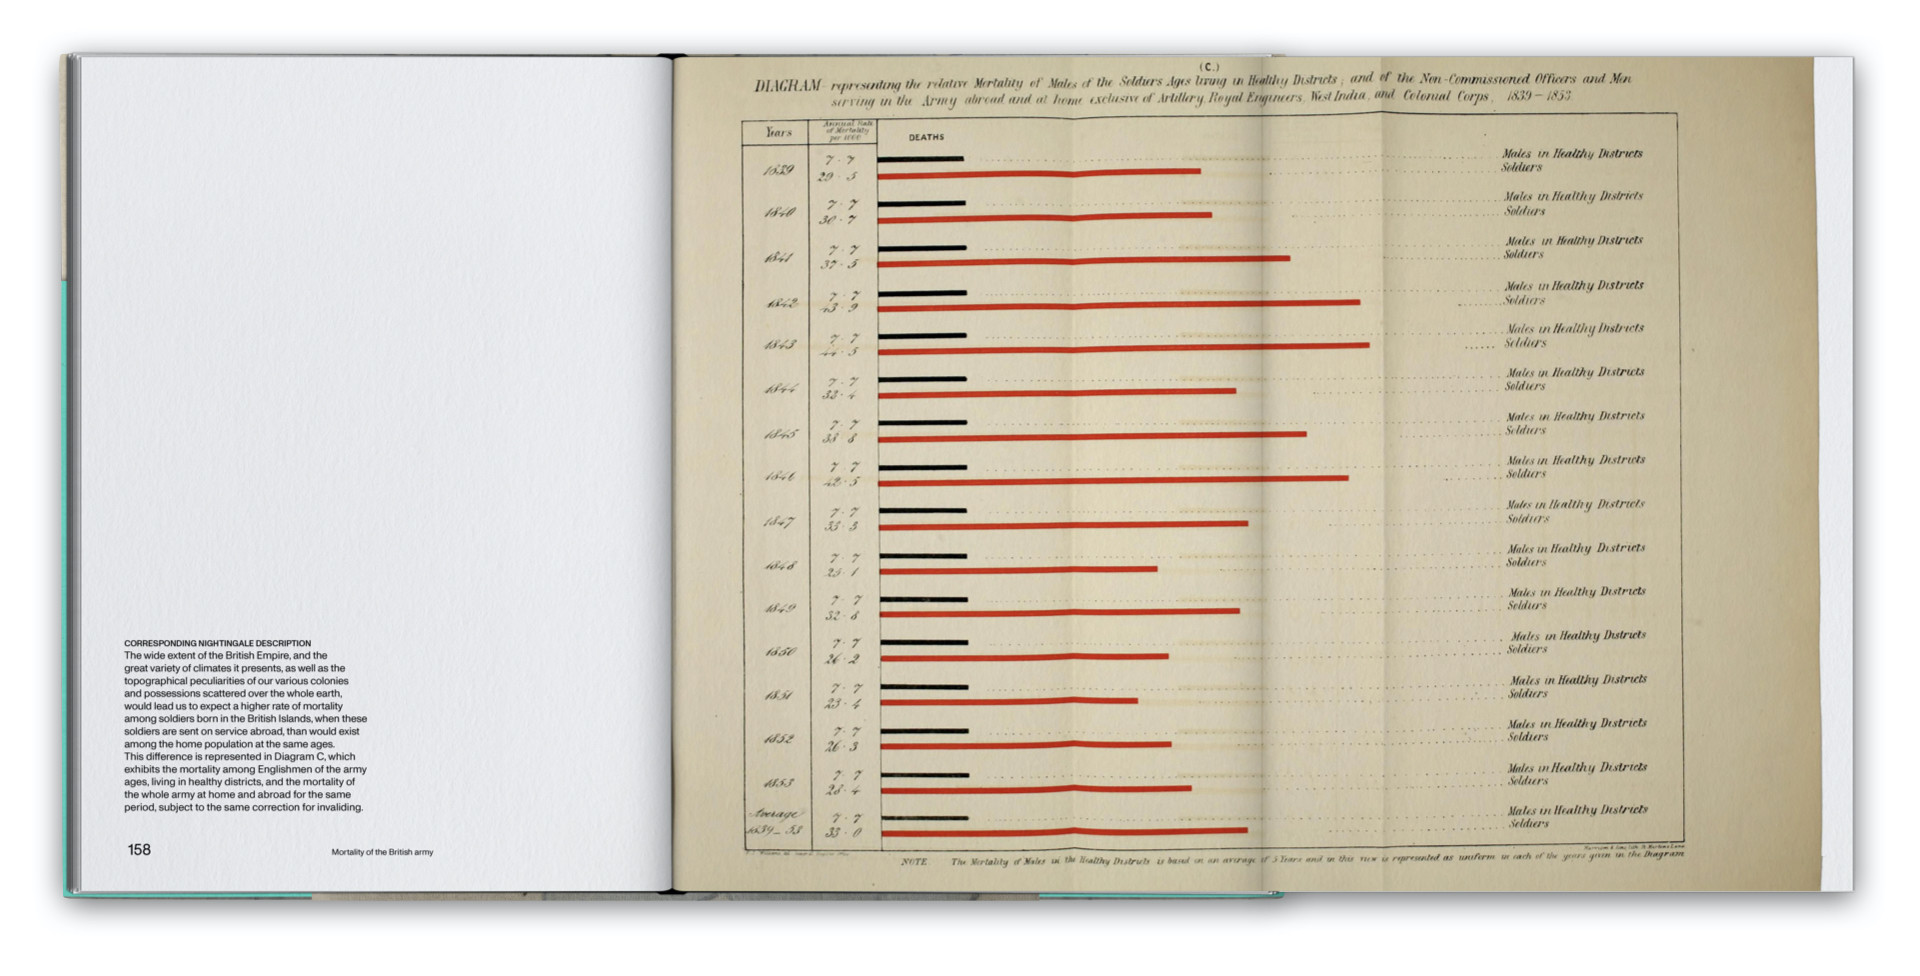 CORRESPONDING NIGHTINGALE DESCRIPTION
The wide extent of the British Empire, and the
great variety of climates it presents, as well as the
topographical peculiarities of our various colonies
and possessions scattered over the whole earth,
would lead us to expect a higher rate of mortality
among soldiers born in the British Islands, when these
soldiers are sent on service abroad, than would exist
among the home population at the same ages.
This difference is represented in Diagram C, which
exhibits the mortality among Englishmen of the army
ages, living in healthy districts, and the mortality of
the whole army at home and abroad for the same
period, subject to the same correction for invaliding.
158
Mortality of the British army
(C.)
DIAGRAM representing the relative Mortality of Males of the Soldiers Ages living in Healthy Districts; and of the Non-Commissioned Officers and Men
serving in the Army abroad and at home exclusive of Artillery, Royal Engineers, West India, and Colonial Corps, 1839-1853.
Years
Annual Rate
of Mortality
per 1000
DEATHS
1839
7·7 Males in Healthy Districts
29·5 Soldiers
1840
7·7 Males in Healthy Districts
30·7 Soldiers
1841
7·7 Males in Healthy Districts
37·5 Soldiers
1842
7·7 Males in Healthy Districts
43·9 Soldiers
1843
7·7 Males in Healthy Districts
44·5 Soldiers
1844
7·7 Males in Healthy Districts
33·4 Soldiers
1845
7·7 Males in Healthy Districts
Soldiers
1846
7·7 Males in Healthy Districts
42·5 Soldiers
1847
7·7 Males in Healthy Districts
33·3 Soldiers
1848
7·7 Males in Healthy Districts
25·1 Soldiers
1849
7·7 Males in Healthy Districts
32·8 Soldiers
1850
7·7 Males in Healthy Districts
26·2 Soldiers
1851
7·7 Males in Healthy Districts
23·4 Soldiers
1852
7·7 Males in Healthy Districts
26·3 Soldiers
1853
7·7 Males in Healthy Districts
28·4 Soldiers
Average
1839-53
7·7 Males in Healthy Districts
33·0 Soldiers
NOTE. The Mortality of Males in the Healthy Districts is based on an average of 5 Years and in this view is represented as uniform in each of the years given in the Diagram